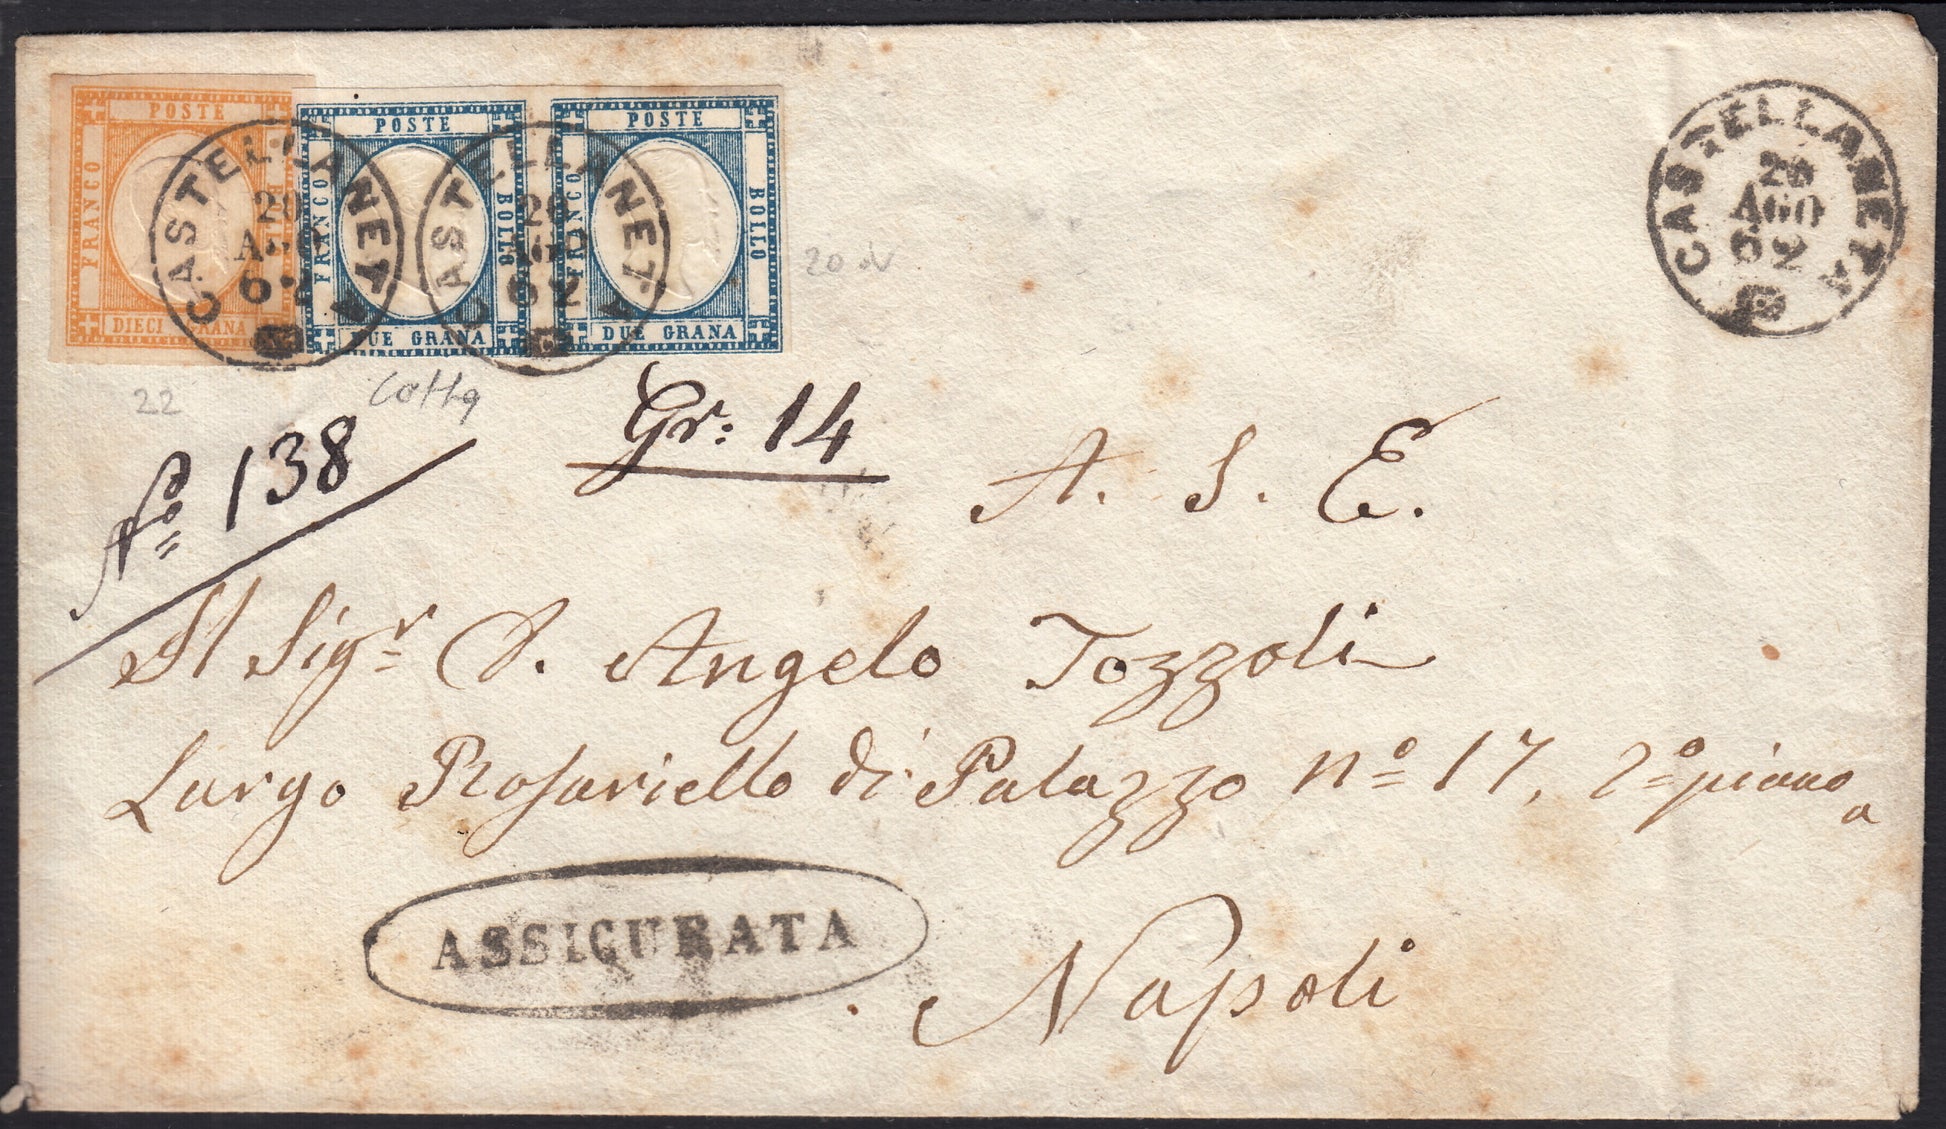 POSTE
FRANCO
BOLLO
DIECI GRANA
POSTE
FRANCO
BOLLO
DUE GRANA
POSTE
FRANCO
BOLLO
DUE GRANA
CASTELLANETA
20
AGO
62
CASTELLANETA
20
AGO
62
CASTELLANETA
20
AGO
62
22
20
Nº 138
Gr: 14
A. S. E.
Il Sigr D. Angelo Tozzoli
Largo Rosariello di Palazzo nº 17, 2º piano
a
ASSICURATA
Napoli